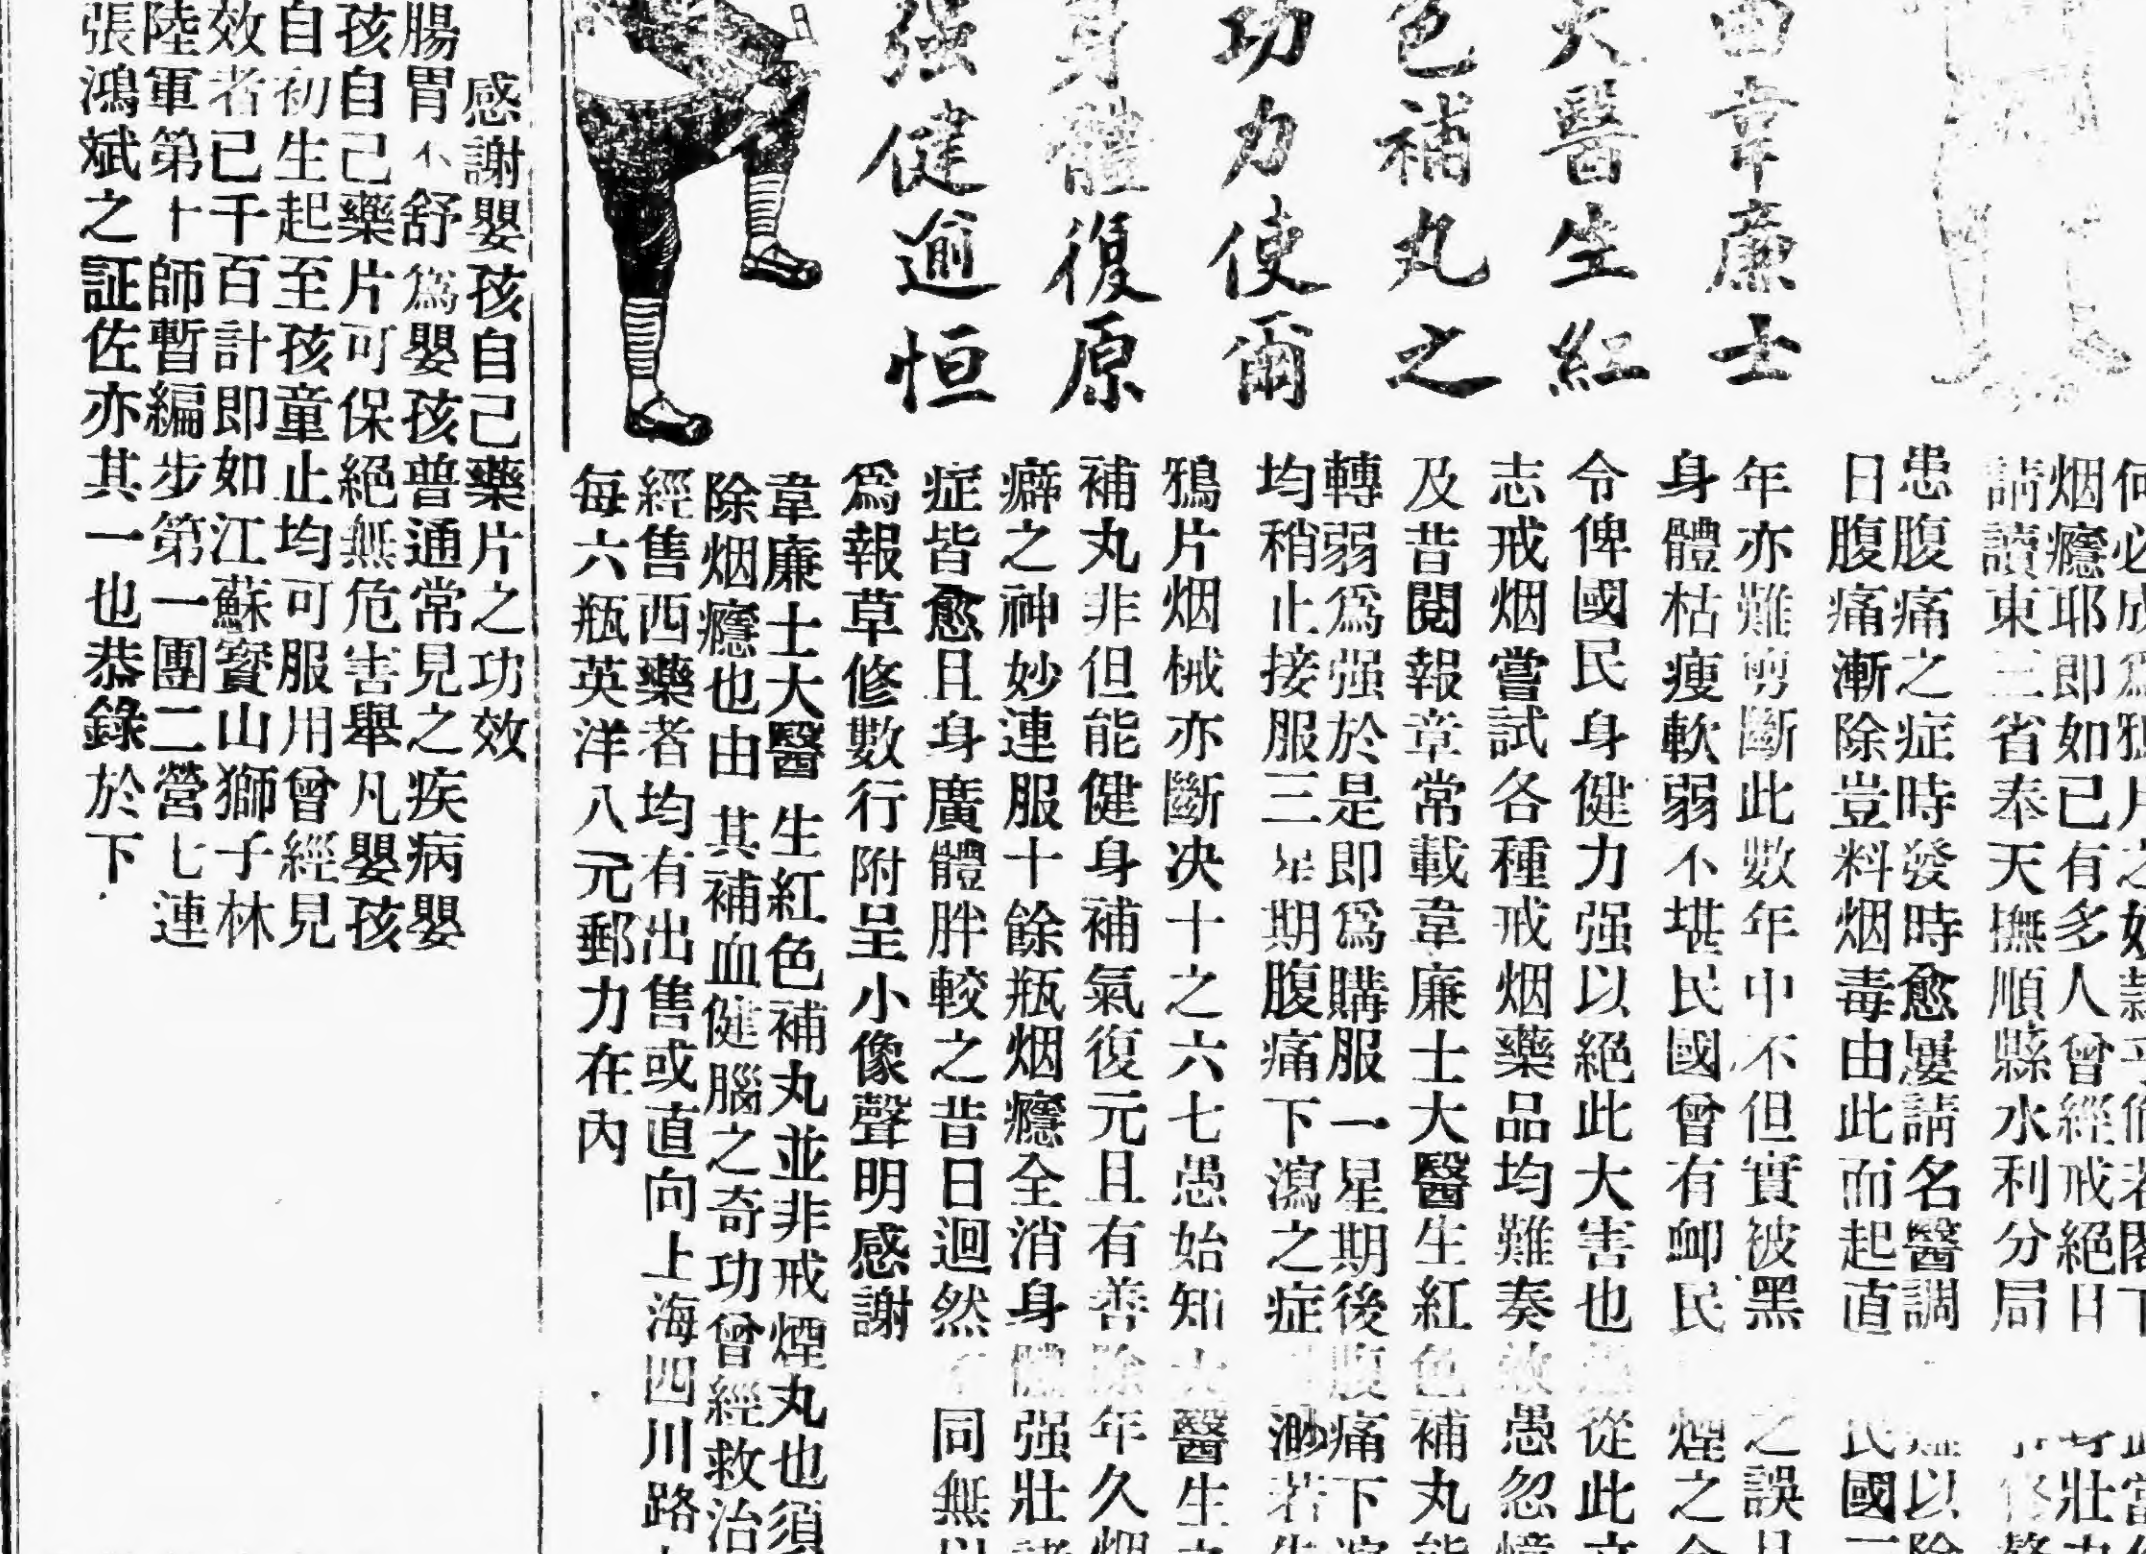 韋廉士
大醫生紅
色補丸之
功力使爾
身體復原
强健逾恒
烟癮耶即如已有多人曾經戒絕日
請讀東三省奉天撫順縣水利分局
患腹痛之症時發時愈屢請名醫調
日腹痛漸除豈料烟毒由此而起直 民國
年亦難剪斷此數年中不但實被黑 之誤
身體枯瘦軟弱不堪民國曾有䘏民 煙之
令俾國民身健力强以絕此大害也 從此
志戒烟嘗試各種戒烟藥品均難奏效愚忽
及昔閱報章常載韋廉士大醫生紅色補丸能
轉弱爲强於是即爲購服一星期後腹痛下瀉
均稍止接服三星期腹痛下瀉之症 渺若
鴉片烟械亦斷决十之六七愚始知大醫生
補丸非但能健身補氣復元且有善除年久烟
癖之神妙連服十餘瓶烟癮全消身體强壯諸
症皆愈且身廣體胖較之昔日迴然 同無以
爲報草修數行附呈小像聲明感謝
韋廉士大醫生紅色補丸並非戒煙丸也須
除烟癮也由其補血健腦之奇功曾經救治
經售西藥者均有出售或直向上海四川路
每六瓶英洋八元郵力在內
感謝嬰孩自己藥片之功效
腸胃不舒爲嬰孩普通常見之疾病嬰
孩自己藥片可保絕無危害舉凡嬰孩
自初生起至孩童止均可服用曾經見
效者已千百計即如江蘇寶山獅子林
陸軍第十師暫編步第一團二營七連
張鴻斌之証佐亦其一也恭錄於下